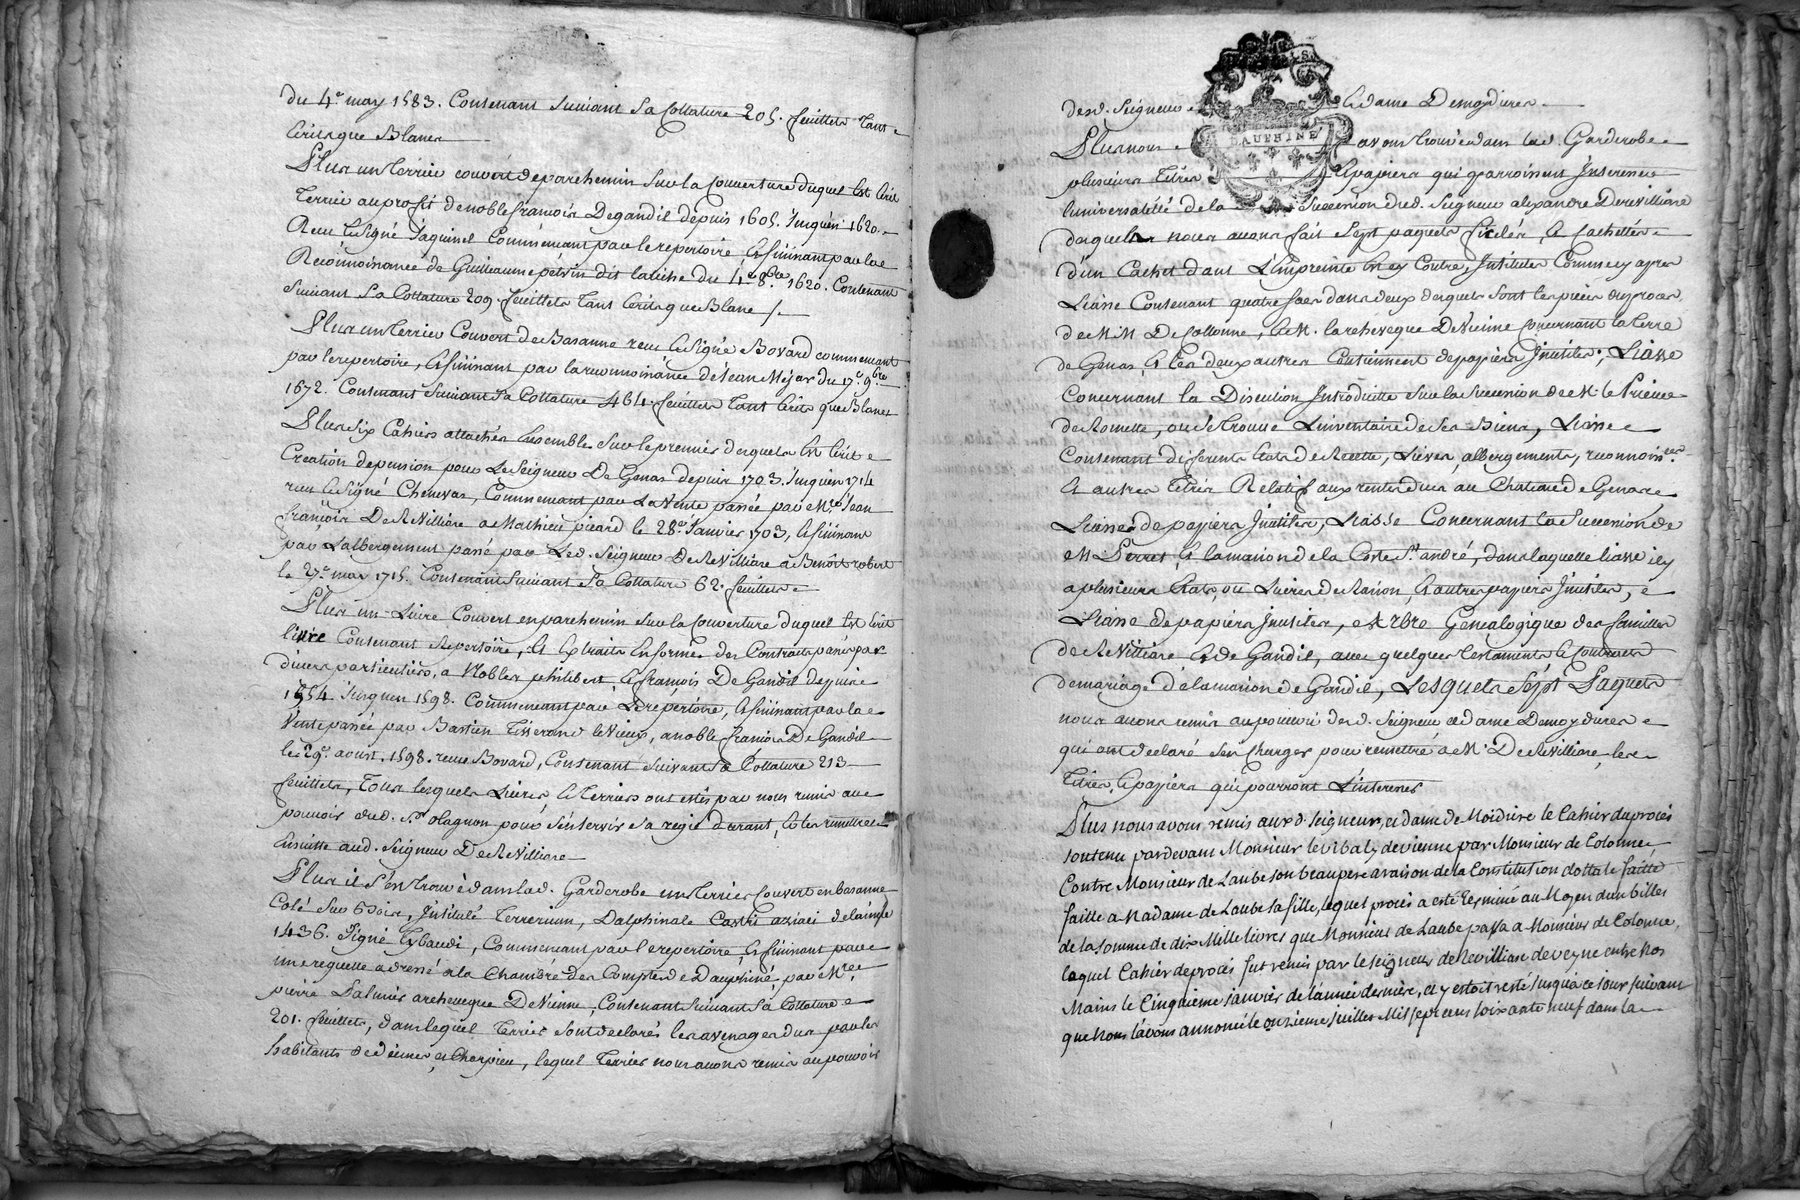 du 4e. may 1583. Contenant suivant sa Cottature 205. feuillets Tant
Ecrits que Blancs
Plus un terrier couvert de parchemin sur la Couverture duquel Est Ecrit
Terrier au profit de noble françois Degandil depuis 1605. Jusqu'en 1620.
Reçu et signé Jaquinel Commençant par le repertoire, et finissant par la
Reconnoissance de Guilleaume pelvin dit la liche du 1er 8bre. 1620. Contenant
suivant sa Cottature 209. feuillets tant Ecrits que Blanc /.
Plus un terrier Couvert de Basanne reçu et signé Bovard commencant
par le repertoire, et finissant par la reconnoissance de Jean Mejas du 17e. 9bre
1672. Contenant suivant sa Cottature 464. feuillets tant Ecrits que Blancs
Plus six Cahiers attachés Ensemble sur le premier desquels Est Ecrit
Création de pension pour Le Seigneur De Genas depuis 1703. Jusqu'en 1714
reçu et signé Chenevas, Commencant par La Vente passée par Mre. Jean
françois De Revilliere a Mathieu picard le 28e. Janvier 1703, et finissant
par L'albergement passé par Led. Seigneur De Revilliere a Benoît robert
le 27e. may 1715. Contenant suivant sa Cottature 62. feuillets
Plus un Livre Couvert en parchemin sur la Couverture duquel Est Ecrit
livre Contenant Repertoire, et Extraits en forme des Contrats passés par
divers particuliers, a Nobles philibert, et françois De Gandil depuis
1554. Jusqu'en 1598. Commencant par Le repertoire, et finissant par la
Vente passée par Bastien Tisserand le Vieux, a noble françois De Gandil
le 29e. aoust. 1598. reçue Bovard, Contenant suivant sa Cottature 213
feuillets, Tous lesquels Livres, et Terriers ont estés par nous remis au
pouvoir dud. Sr. olagnon pour s'en servir sa regie durant, et les remettre
Ensuitte aud. Seigneur De Revilliere
Plus il s'en trouvé dans lad. Garderobe un Terrier Couvert en basanne
Colé sur Bois, Jntitulé Terrerium, Dalphinale Castri aziaci de l'année
1436. Signé Eybaudi, Commencant par le repertoire, et finissant par
une requette adressé a la Chambre des Comptes de Dauphiné, par Mre.
pierre Palmier archeveque De Vienne, Contenant suivant sa Cottature
201. feuillets, dans lequel Terrier sont declarés les avenages dus par les
habitants de décines et Charpieu, lequel Terrier nous avons remis au pouvoir
desd. Seigneur et dame Demoydieres
DAUPHINÉ
Plus nous avons trouvé dans lad. Garderobe
plusieurs titres et papiers qui paroissent Jnteresser
l'universalité de la Succession dud. Seigneur alexandre De revilliere
desquels nous avons fait Sept paquets ficelés, et cachettés
d'un Cachet dont L'Empreinte Est cy Contre, Jntitulés Comme cy apres
Liasse Contenant quatre sacs dans deux desquels sont les pieces du procès
de M.M. De Collonne, et M. l'archeveque De Vienne Concernant la terre
de Genas, et les deux autres Contiennent des papiers Jnutiles; Liasse
Concernant la Discution Jntroduitte sur la succession de M. le Prieur
de Romette, ou se trouve L'inventaire de ses Biens, Liasse
Contenant differents Etats de Recette, Lièves, albergements, reconnoisces.
et autres titres Relatifs aux rentes dues au Chateau de Genas
Liasse de papiers Jnutiles, Liasse Concernant la Succession de
M. Perret, et la maison de la Coste St. andré, dans laquelle liasse il y
a plusieurs Etats, ou Lieves de Raison, et autres papiers Jnutiles,
Liasse de papiers Jnutiles, et Arbre Genealogique des familles
de Revilliere et de Gandil, avec quelques testaments et Contrats
de mariage de la maison de Gandil, Lesquels Sept Paquets
nous avons remis au pouvoir desd. Seigneur et dame Demoydieres
qui ont declaré s'en charger pour remettre a M. De Revilliere, les
titres, et papiers qui pourront L'interesser
Plus nous avons remis auxd. seigneur, et dame de Moidire le Cahier du procés
soutenu pardevant Monsieur le vibaly de vienne par Monsieur de Colonne
Contre Monsieur de Laube son beau pere a raison de la Constitution dottale faitte
faitte a Madame de Laube sa fille, lequel procès a esté Terminé au Moyen d'un billet
de la somme de dix Mille livres que Monsieur de Laube passa a Monsieur de Colonne,
lequel Cahier de procès fut remis par le seigneur de Revilliere de veyne entre Nos
Mains le Cinquieme janvier de l'année derniere, et y estoit resté jusqu'a ce jour suivant
que Nous l'avons annoncé le onzieme juillet Mil sept cens soixante neuf dans la